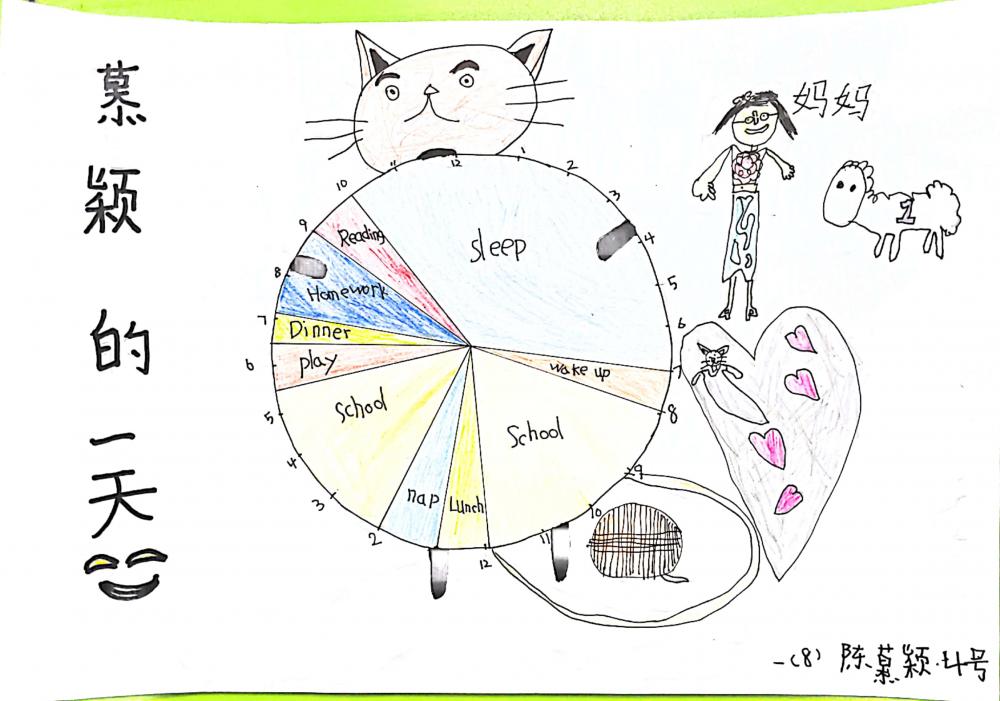 慕颖的一天
妈妈
1
11 12 1 2 3 4 5 6 7 8 9 10 11 12 2 3 4 5 6 7 8 9 10
sleep
wake up
School
Lunch
nap
school
play
Dinner
Homework
Reading
一(8) 陈慕颖.4号